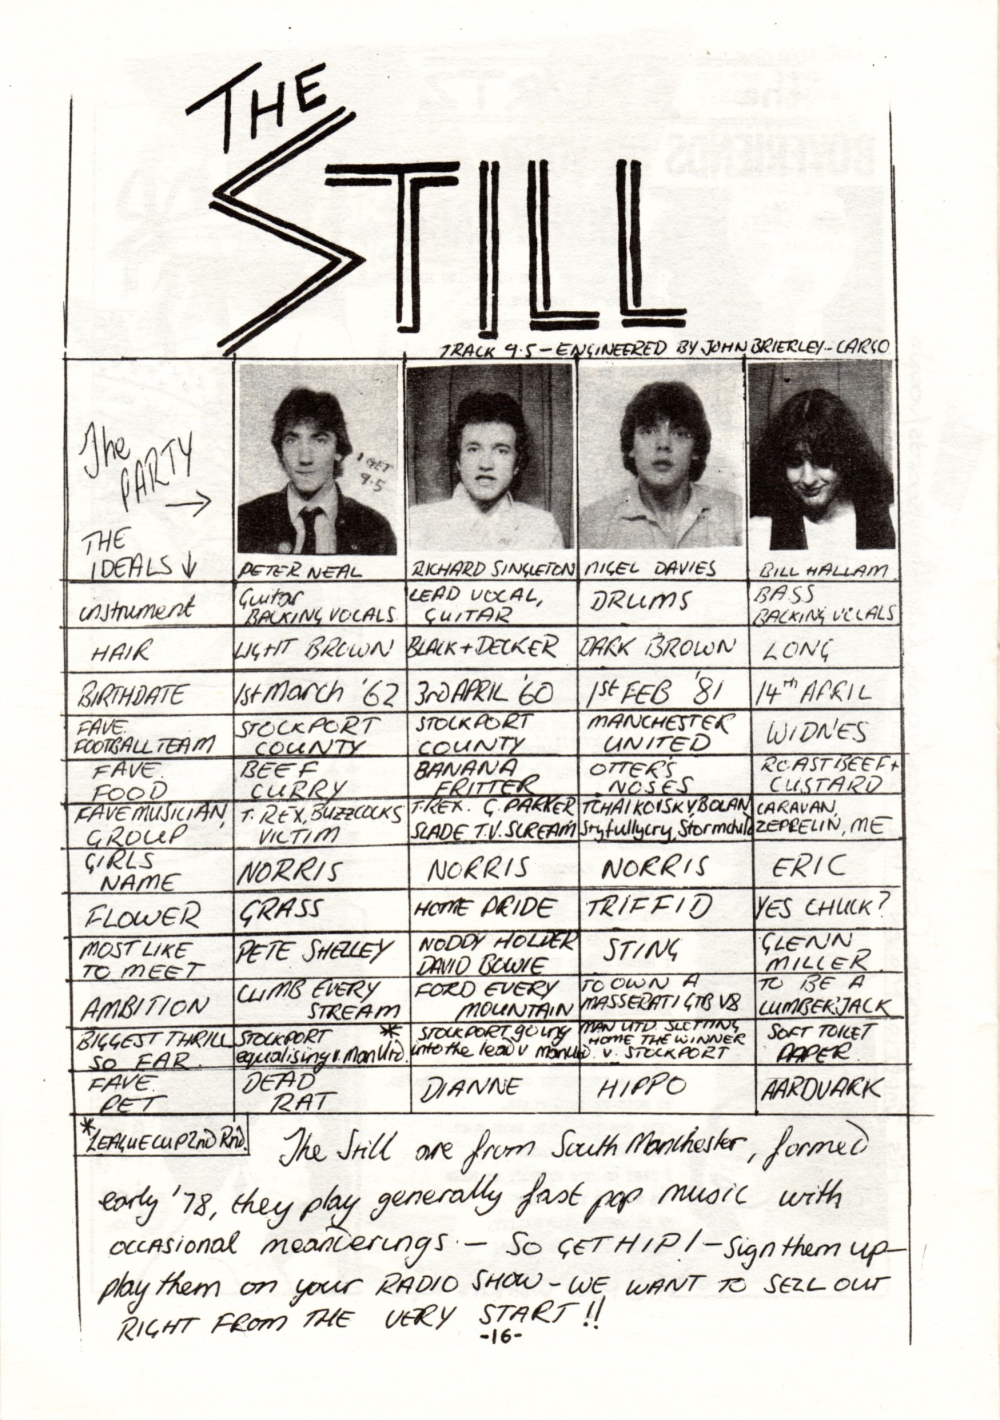 THE
STILL
TRACK 9.5 - ENGINEERED BY JOHN BRIERLEY - CARGO
The
PARTY
→
I GET
9.5
THE
IDEALS ↓
PETER NEAL
RICHARD SINGLETON
NIGEL DAVIES
BILL HALLAM
instrument
Guitar
BACKING VOCALS
LEAD VOCAL,
GUITAR
DRUMS
BASS
BACKING VOCALS
HAIR
LIGHT BROWN
BLACK + DECKER
DARK BROWN
LONG
BIRTHDATE
1st March '62
3rd APRIL '60
1st FEB '81
14th APRIL
FAVE
FOOTBALL TEAM
STOCKPORT
COUNTY
STOCKPORT
COUNTY
MANCHESTER
UNITED
WIDNES
FAVE
FOOD
BEEF
CURRY
BANANA
FRITTER
OTTER'S
NOSES
ROAST BEEF +
CUSTARD
FAVE MUSICIAN,
GROUP
T. REX, BUZZCOCKS
VICTIM
T. REX. G. PARKER
SLADE T.V. SCREAM
TCHAIKOVSKY, BOLAN
CARAVAN,
ZEPPELIN, ME
GIRLS
NAME
NORRIS
NORRIS
NORRIS
ERIC
FLOWER
GRASS
HOME PRIDE
TRIFFID
YES CHUCK?
MOST LIKE
TO MEET
PETE SHELLEY
NODDY HOLDER
DAVID BOWIE
STING
GLENN
MILLER
AMBITION
CLIMB EVERY
STREAM
FORD EVERY
MOUNTAIN
TO OWN A
MASSERATI GTB V8
TO BE A
LUMBERJACK
BIGGEST THRILL
SO FAR
STOCKPORT *
equalising v. Man Utd
STOCKPORT going
into the lead v man utd
MAN UTD. SLOTTING
HOME THE WINNER
v. STOCKPORT
SOFT TOILET
PAPER
FAVE
PET
DEAD
RAT
DIANNE
HIPPO
AARDVARK
* LEAGUE CUP 2nd Rnd.
The Still are from South Manchester, formed
early '78, they play generally fast pop music with
occasional meanderings. - SO GET HIP! - Sign them up -
play them on your RADIO SHOW - WE WANT TO SELL OUT
RIGHT FROM THE VERY START!!
-16-